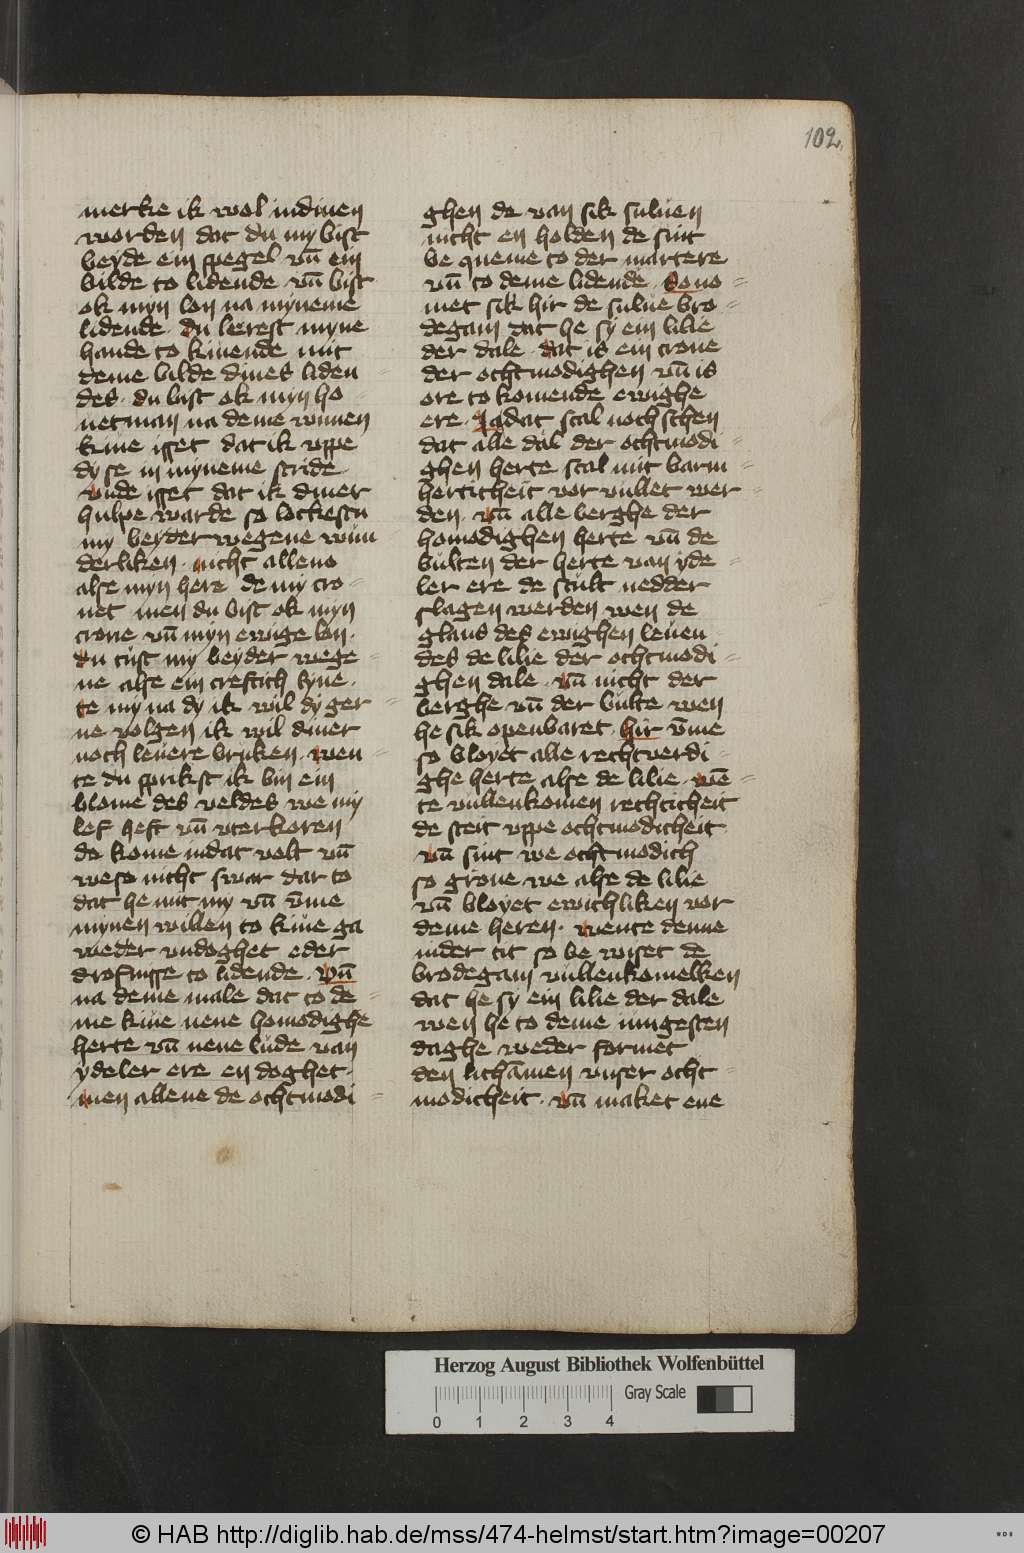 102.
merke ik wol in dinen
worden dat du my bist
beyde ein spegel vn̄ ein
bilde to lidende vn̄ bist
ok myn lon na myneme
lidende. du lerest myne
hande to kiuende mit
deme bilde dines liden
des. du bist ok myn ho-
uetman na deme winnen
kiue isset dat ik vppe
dy se in myneme stride
vnde isset dat ik diner
hulpe warde so lockestu
my beyder wegene wun
derliken. nicht alleno
alse myn here de my cro-
net men du bist ok myn
crone vn̄ myn ewige lon.
du tust my beyder wege-
ne alse ein creftich syne.
te my na dy ik wil dy ger
ne volgen ik wil diner
noch leuere bruken. wen
te du sprikst ik bin ein
blome des veldes we my
lef heft vn̄ vterkoren
de kome in dat velt vn̄
weso nicht swar dar to
dat he mit my vn̄ v̄me
mynen willen to kiue ga
weder vndoghet eder
drofnisse to lidende. vn̄
na deme male dat to de-
me kiue nene homodighe
herte vn̄ nene lude van
ydeler ere en doghet.
men allene de ochtmodi-
ghen de van sik suluen
nicht en holden de sint
be queme to der martere
vn̄ to deme lidende. So no-
met sik hir de sulue bro-
degam dat he sy ein lilie
der dale. dat is ein crone
der ochtmodighen vn̄ is
ore to komende ewighe
ere. Ja dat scal noch schen
dat alle dal der ochtmodi-
ghen herte scal mit barm-
herticheit vor vullet wer-
den. vn̄ alle berghe der
homodighen herte vn̄ de
bulten der herte van yde-
ler ere de scult nedder
slagen werden wen de
glans des ewighen leuen-
des de lilie der ochtmodi-
ghen dale. vn̄ nicht der
berghe vn̄ der bulte wen
he sik openbaret. hir v̄me
so bloyet alle rechtuerdi-
ghe herte alse de lilie. wē-
te vullenkomen rechticheit
de steit vppe ochtmodicheit
vn̄ sint we ochtmodich
so grone we alse de lilie
vn̄ bloyet ewichliken vor
deme heren. wente denne
in der tit so be wiset de
brodegam vullenkomelken
dat he sy ein lilie der dale
wen he to deme iungesten
daghe weder formet
den lichāmen vnser ocht-
modicheit. vn̄ maket ene
Herzog August Bibliothek Wolfenbüttel
Gray Scale
0 1 2 3 4
© HAB http://diglib.hab.de/mss/474-helmst/start.htm?image=00207